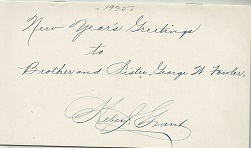 1935
New Year's Greetings
to
Brother and Sister George W. Fowler.
Heber J. Grant